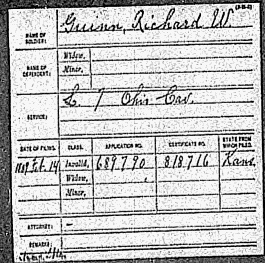 (3-8-6)
NAME OF SOLDIER: Guinn, Richard W.
NAME OF DEPENDENT: Widow,
Minor,
SERVICE: L 7 Ohio Cav.
DATE OF FILING. CLASS. APPLICATION NO. CERTIFICATE NO. STATE FROM WHICH FILED.
Feb. 14 Invalid, 689790 818716 Kans.
Widow,
Minor,
ATTORNEY:
REMARKS: